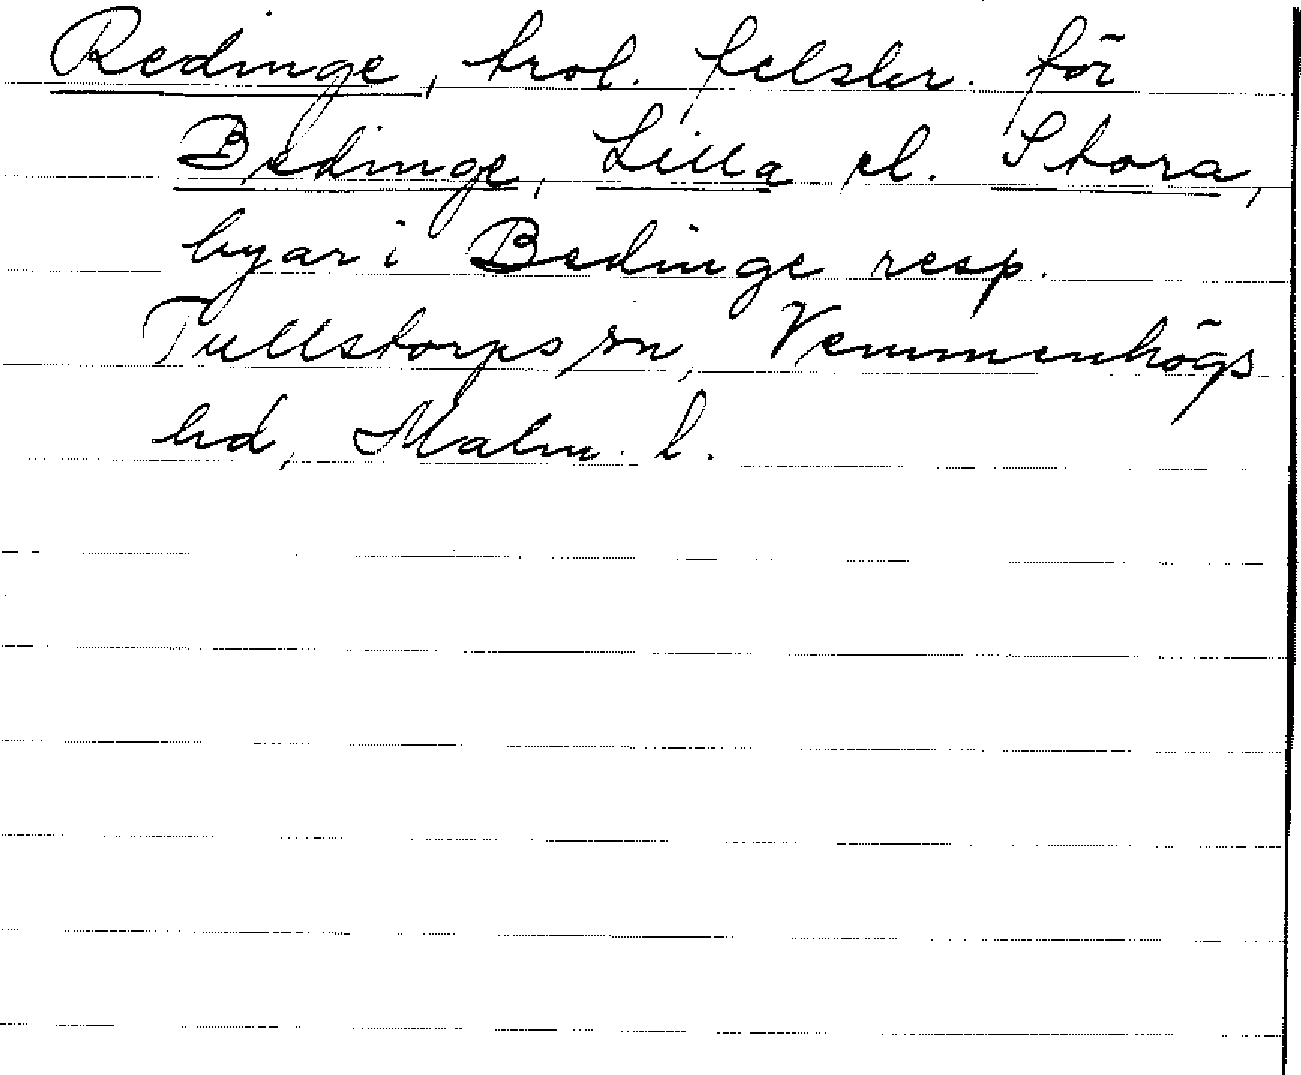 Redinge, trol. felskr. för
Bedinge, Lilla el. Stora,
byar i Bedinge resp.
Tullstorps sn, Vemmenhögs
hd, Malm. l.